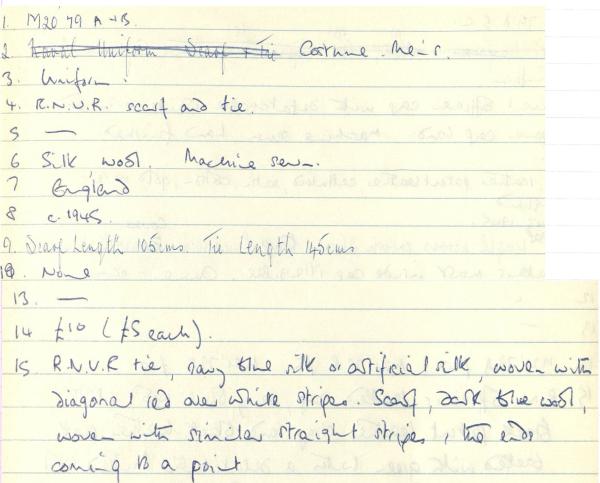 1. M20'79 A+B.
2 Naval Uniform Scarf + Tie Costume. Men's.
3. Uniform.
4. R.N.V.R. scarf and tie.
5 —
6 Silk wool. Machine sewn.
7 England
8 c.1945.
9. Scarf Length 105cms. Tie Length 145cms
10. None
13. —
14 £10 (£5 each).
15 R.N.V.R tie, navy blue silk or artificial silk, woven with
diagonal red over white stripes. Scarf, dark blue wool,
woven with similar straight stripes, the ends
coming to a point